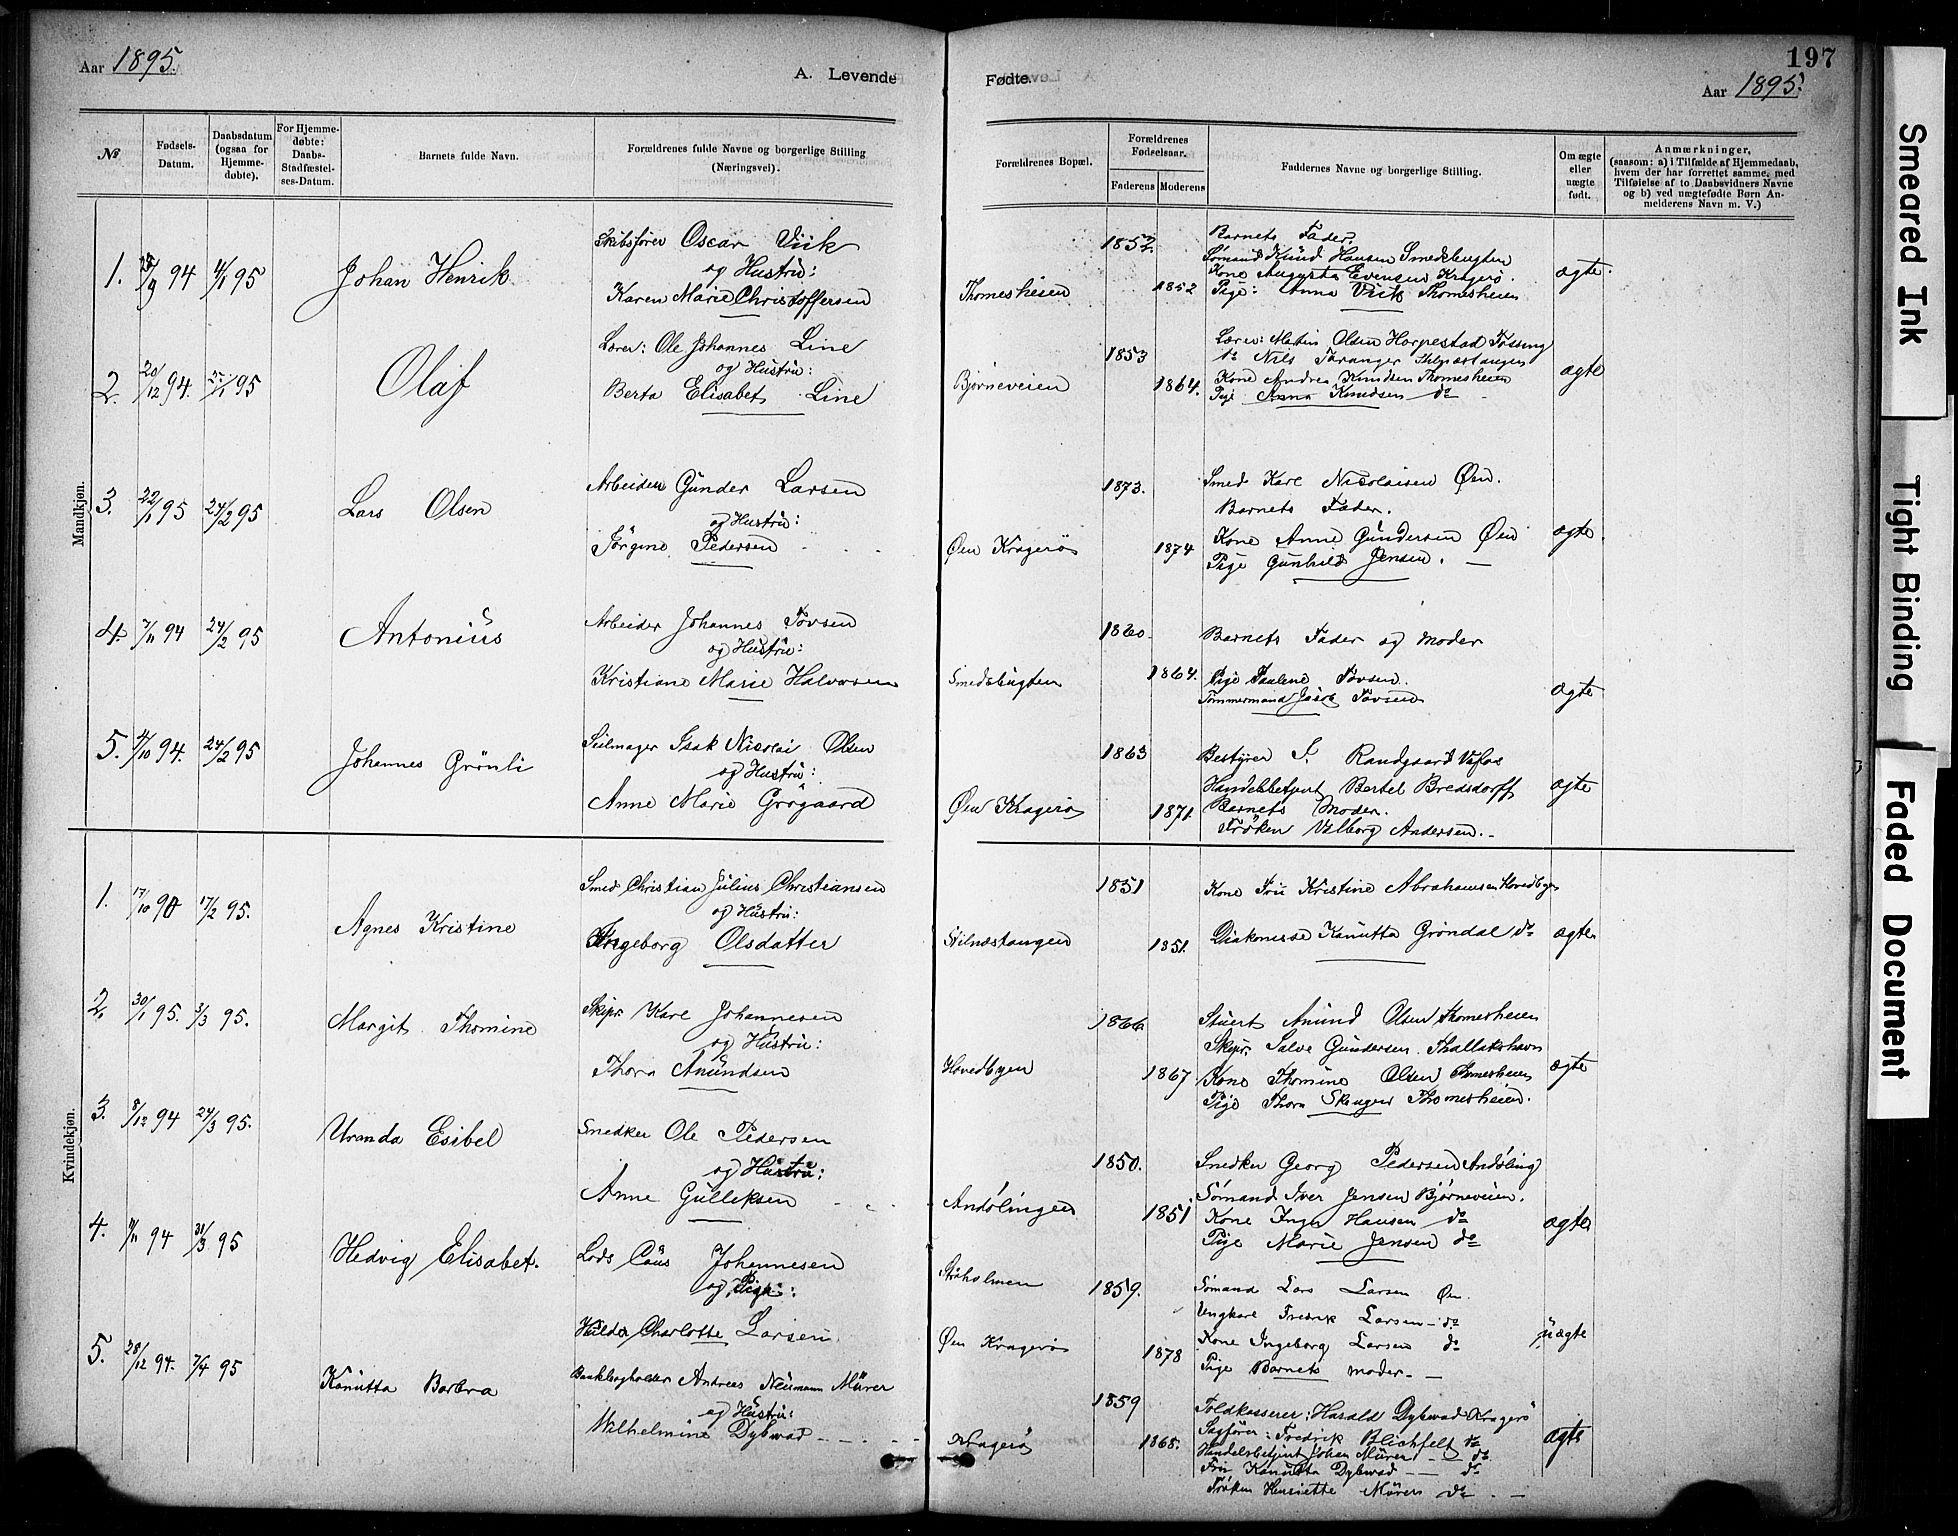 Aar 1895.
A. Levende
№
Fødsels-Datum.
Daabsdatum (ogsaa for Hjemme-døbte).
For Hjemme-døbte: Daabs-Stadfæstel-ses-Datum.
Barnets fulde Navn.
Forældrenes fulde Navne og borgerlige Stilling (Næringsvei).
Mandkjøn.
1. 94 4/1 95 Johan Henrik
Skibsfører Oscar Viik
og Hustru:
Karen Marie Christoffersen
2. 20/12 94. 95 Olaf
Lærer: Ole Johannes Line
og Hustru:
Berta Elisabet Line
3. 22/1 95 24/2 95 Lars Olsen
Arbeider Gunder Larsen
og Hustru:
Jørgine Pedersen
4. 7/11 94 24/2 95 Antonius
Arbeider Johannes Tovsen
og Hustru:
Kristiane Marie Halvorsen
5. 4/10 94. 24/2 95 Johannes Grønli
Seilmager Isak Nicolai Olsen
og Hustru:
Anne Marie Grøgaard
Kvindekjøn.
1. 17/10 90 17/2 95. Agnes Kristine
Smed Christian Julius Christiansen
og Hustru:
Ingeborg Olsdatter
2. 30/1 95. 3/3 95. Margit Thomine
Skipr. Karl Johannesen
og Hustru:
Thora Anundsen
3. 8/12 94 24/3 95. Uranda Esibel
Snedker Ole Pedersen
og Hustru:
Anne Gulleksen
4. 11/11 94 31/3 95 Hedvig Elisabet.
Lods Claus Johannesen
og Pige:
Hulda Charlotte Larsen
5. 28/12 94. 7/4 95 Kanutta Barbra
Bankbogholder Andreas Neumann Mürer
og Hustru:
Wilhelmine Dybwad
197
Fødte.
Aar 1895.
Forældrenes Bopæl.
Forældrenes Fødselsaar.
Faderens Moderens
Faddernes Navne og borgerlige Stilling.
Om ægte eller uægte født.
Anmærkninger,
(saasom: a) i Tilfælde af Hjemmedaab,
hvem der har forrettet samme, med
Tilføielse af to Daabsvidners Navne
og b) ved uægtefødte Børn An-
melderens Navn m. V.)
Thomesheien 1852. 1852
Barnets Fader.
Sømand Knud Hansen Smedsbugten
Kone Augusta Evensen Kragerø.
Pige: Anna Viik Thomesheien
ægte.
Bjørneveien 1853 1864.
Lærer: Olsen Horpestad Fossing
do Nils Faranger Stilnæstangen
Kone Andrea Knudsen Thomesheien
Pige Anna Knudsen do
ægte
Øen Kragerø 1873. 1874
Smed Karl Nicolaisen Øen.
Barnets Fader.
Kone Anne Gundersen Øen
Pige Gunhild Jensen.
ægte.
Smedsbugten 1860. 1864.
Barnets Fader og Moder
Pige Paulene Tovsen.
Tømmermand Jacob Tovsen
ægte
Øen Kragerø 1863 1871.
Bestyrer S. Randgaard Vafos
Handelsbetjent Bertel Bredsdorff
Barnets Moder.
Frøken Valborg Andersen.
ægte
Stilnæstangen 1851 1851.
Kone Fru Kristine Abrahamsen Hovedbyen
Diakonisse Kanutta Grøndal do
ægte
Hovedbyen 1866 1867
Stuert Anund Olsen Thomesheien
Skipr. Salve Gundersen. Thallakshavn
Kone Thomine Olsen Thomesheien
Pige Thora Thomesheien.
ægte
Andølingen 1850. 1851
Snedker Georg Pedersen Andøling
Sømand Iver Jensen Bjørneveien.
Kone Inga Hansen do
Pige Marie Jensen do
ægte
Straholmen 1859.
Øen Kragerø 1878
Sømand Lars Larsen Øen.
Ungkarl Fredrik Larsen do
Kone Ingeborg Larsen do
Pige Barnets moder.
uægte
Kragerø 1859 1868.
Toldkasserer: Harald Dybwad Kragerø
Sagfører: Fredrik Blichfelt do
Handelsbetjent Johan Mürer do
Fru Kanutta Dybwad do
Frøken Henriette Mürer do
ægte
Smeared Ink
Tight Binding
Faded Document